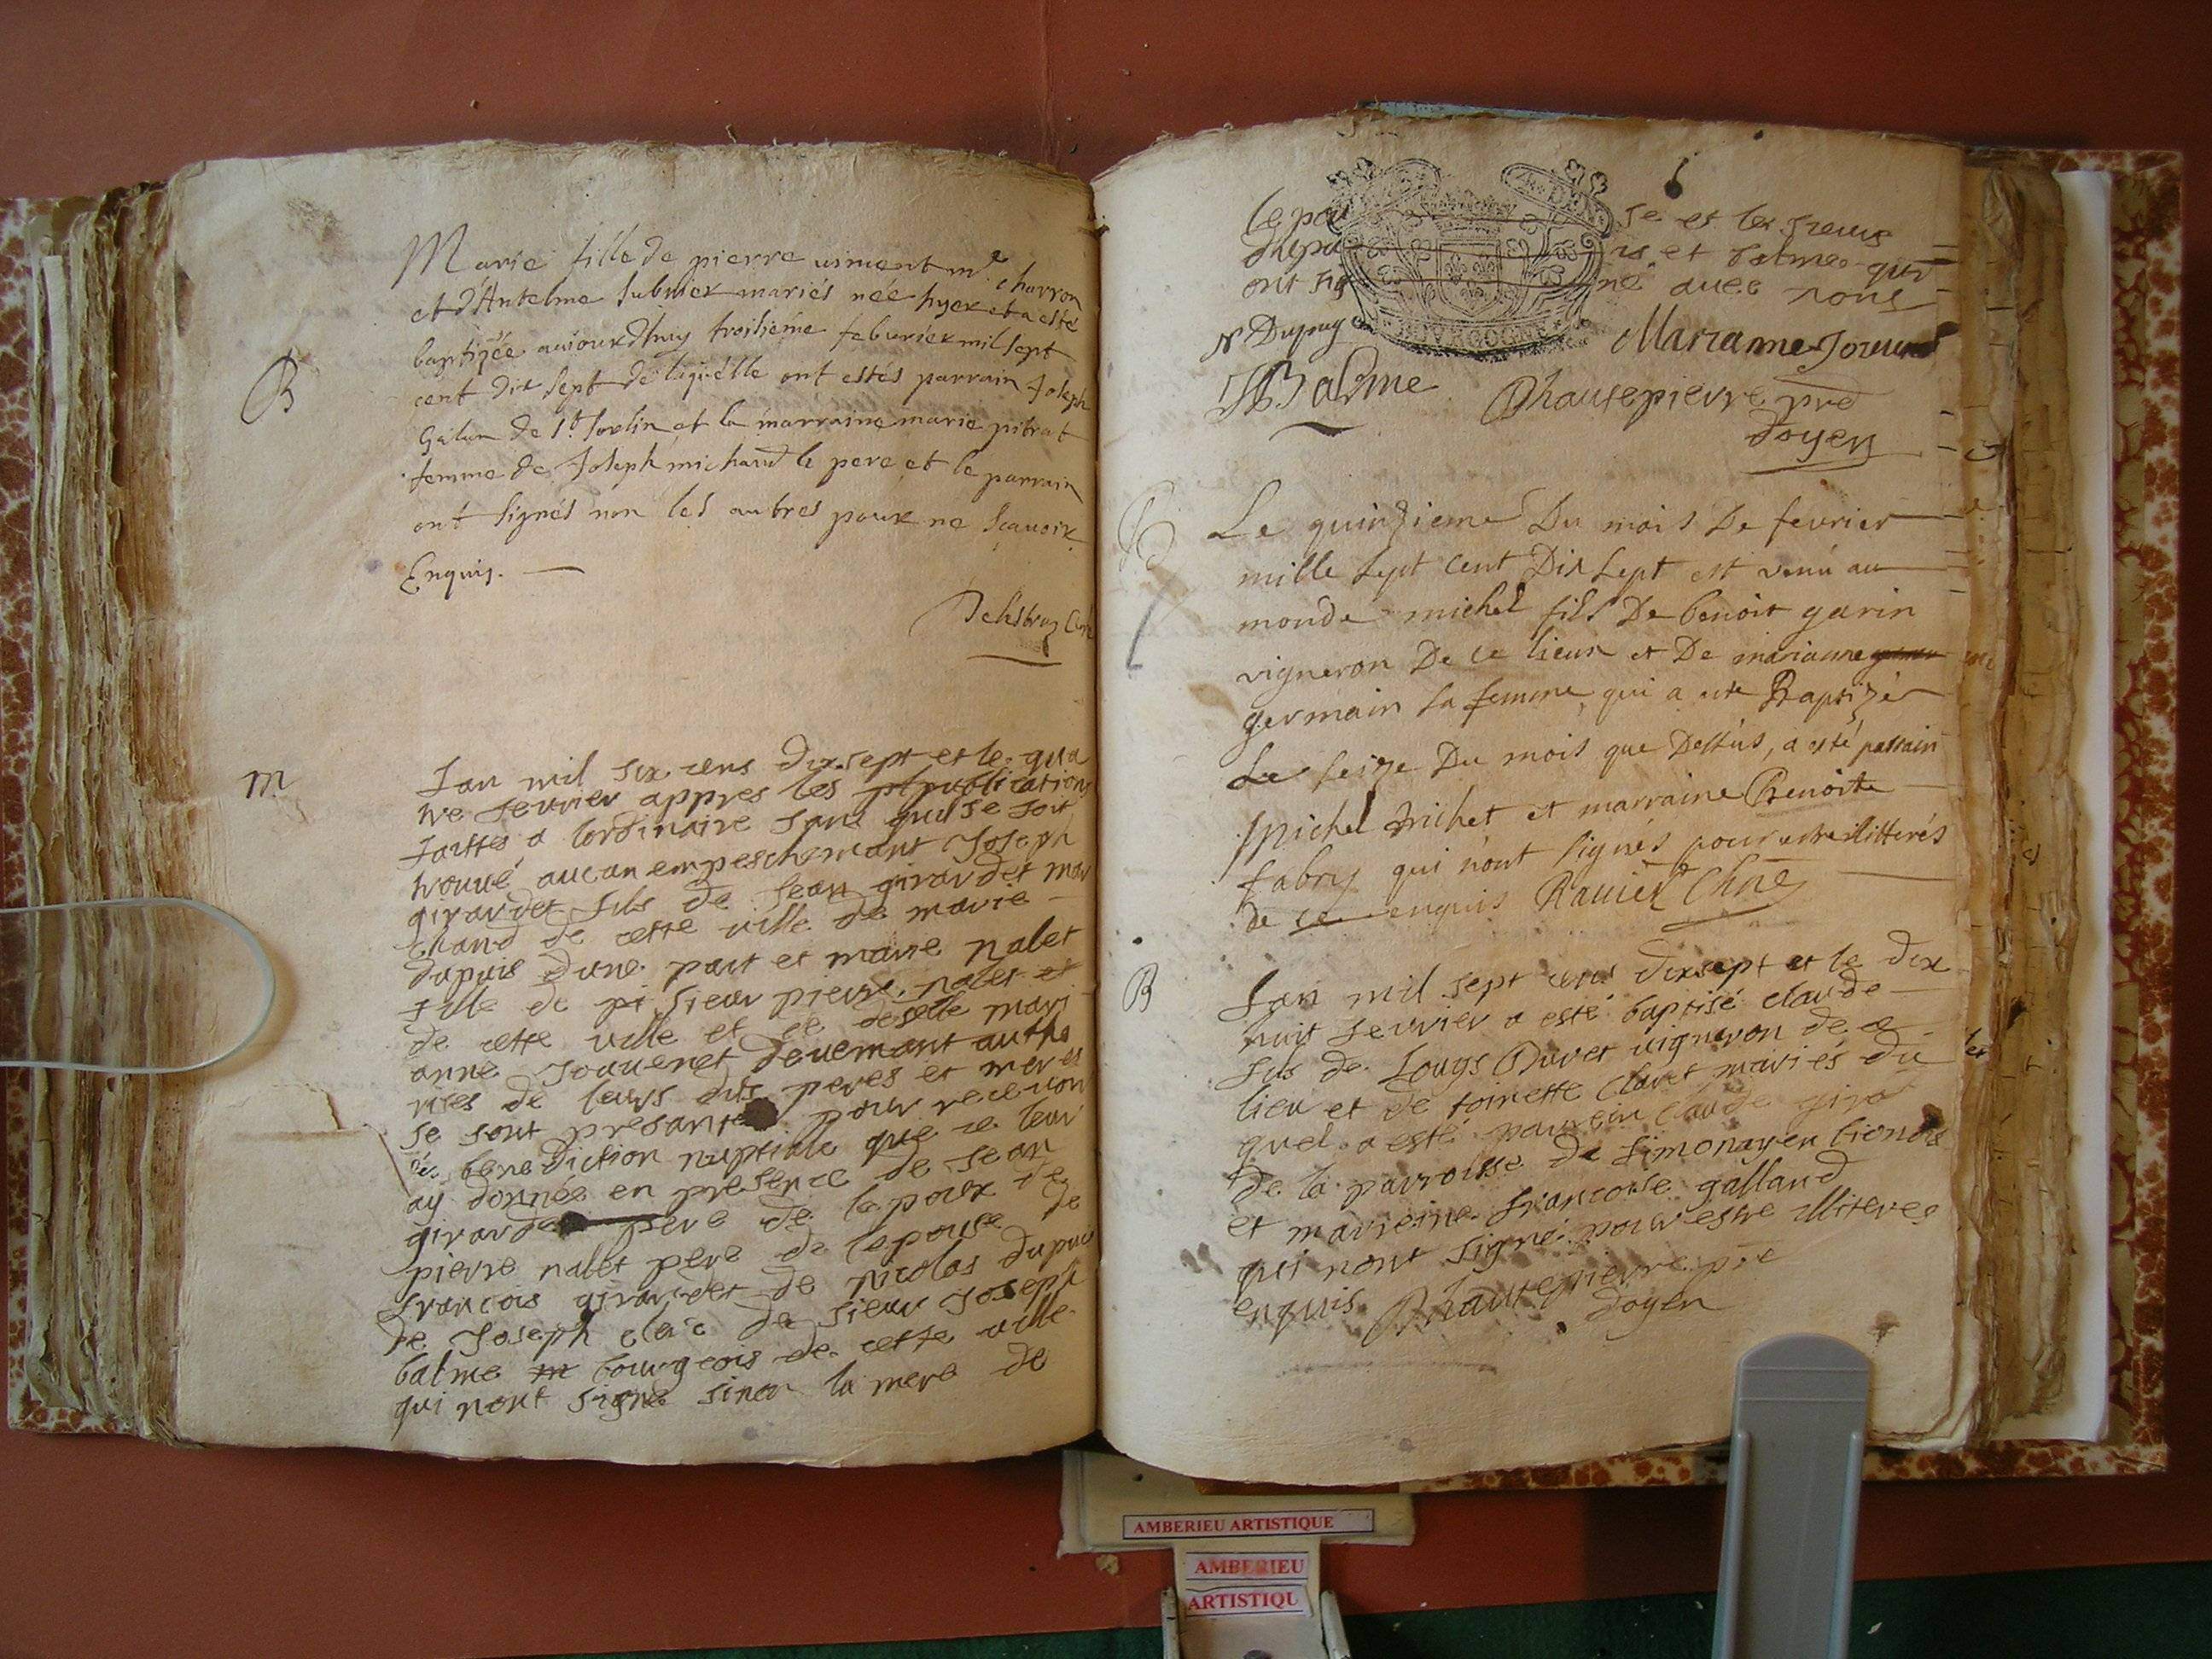 B
Marie fille de pierre usment m.e charron
et d'Antelme Submer mariés née hyer et a esté
baptizée auiourdhuy troisiéme feburier mil sept
cent dix sept de laquelle ont estés parrain Joseph
de St Sorlin et la marraine marie pitrat
femme de Joseph michaud le pere et le parrain
ont signés non les autres pour ne scauoir
Enquis.
m
Lan mil six cens dixsept et le qua
tre feurier appres les publications
faittes a lordinaire sans quil se soit
trouué aucun empeschemant Joseph
girardet fils de Jean girardet mar
chand de cette ville de marie
dupuis dune part et marie nalet
fille de sieur pierre nalet et
de cette ville et de deselle mari
anne Jouuenet deuemant autho
risés de leurs dits peres et meres
se sont presantés pour receuoir
benediction nuptiale que ie leur
ay donnée en presence de Jean
girardet pere de lepoux de
pierre nalet pere de lepouse de
francois girardet de nicolas dupuis
de Joseph clerc de sieur Joseph
balme bourgeois de cette ville
qui nont signe sinon la mere de
lepou se et les sieurs
dupuis et balme qui
ont signé auec nous
N Dupuy
Marianne Jouuenet
JBalme
Dhautepierre pre
doyen
B
Le quinzieme Du mois De fevrier
mille sept cent Dix sept est venu au
monde michel fils De benoit garin
vigneron De ce lieux et De marianne
germain sa femme, qui a ete Baptizé
Le seize Du mois que Dessus, a esté parrain
Michel michet et marraine Benoite
fabry qui n'ont signés pour estre illitterés
de ce enquis Rauier Chne
B
Lan mil sept cens dixsept et le dix
huit feurier a esté baptisé claude
fils de Louys Duret uigneron de ce
lieu et de toinette Claret mariés du
quel a esté parrein claude girot
de la parroisse de Simonay en lionois
et marreine francoise galland
qui nont signé pour estre illiteres
enquis. Dhautepierre pre
doyen
AMBERIEU ARTISTIQUE
AMBERIEU
ARTISTIQU